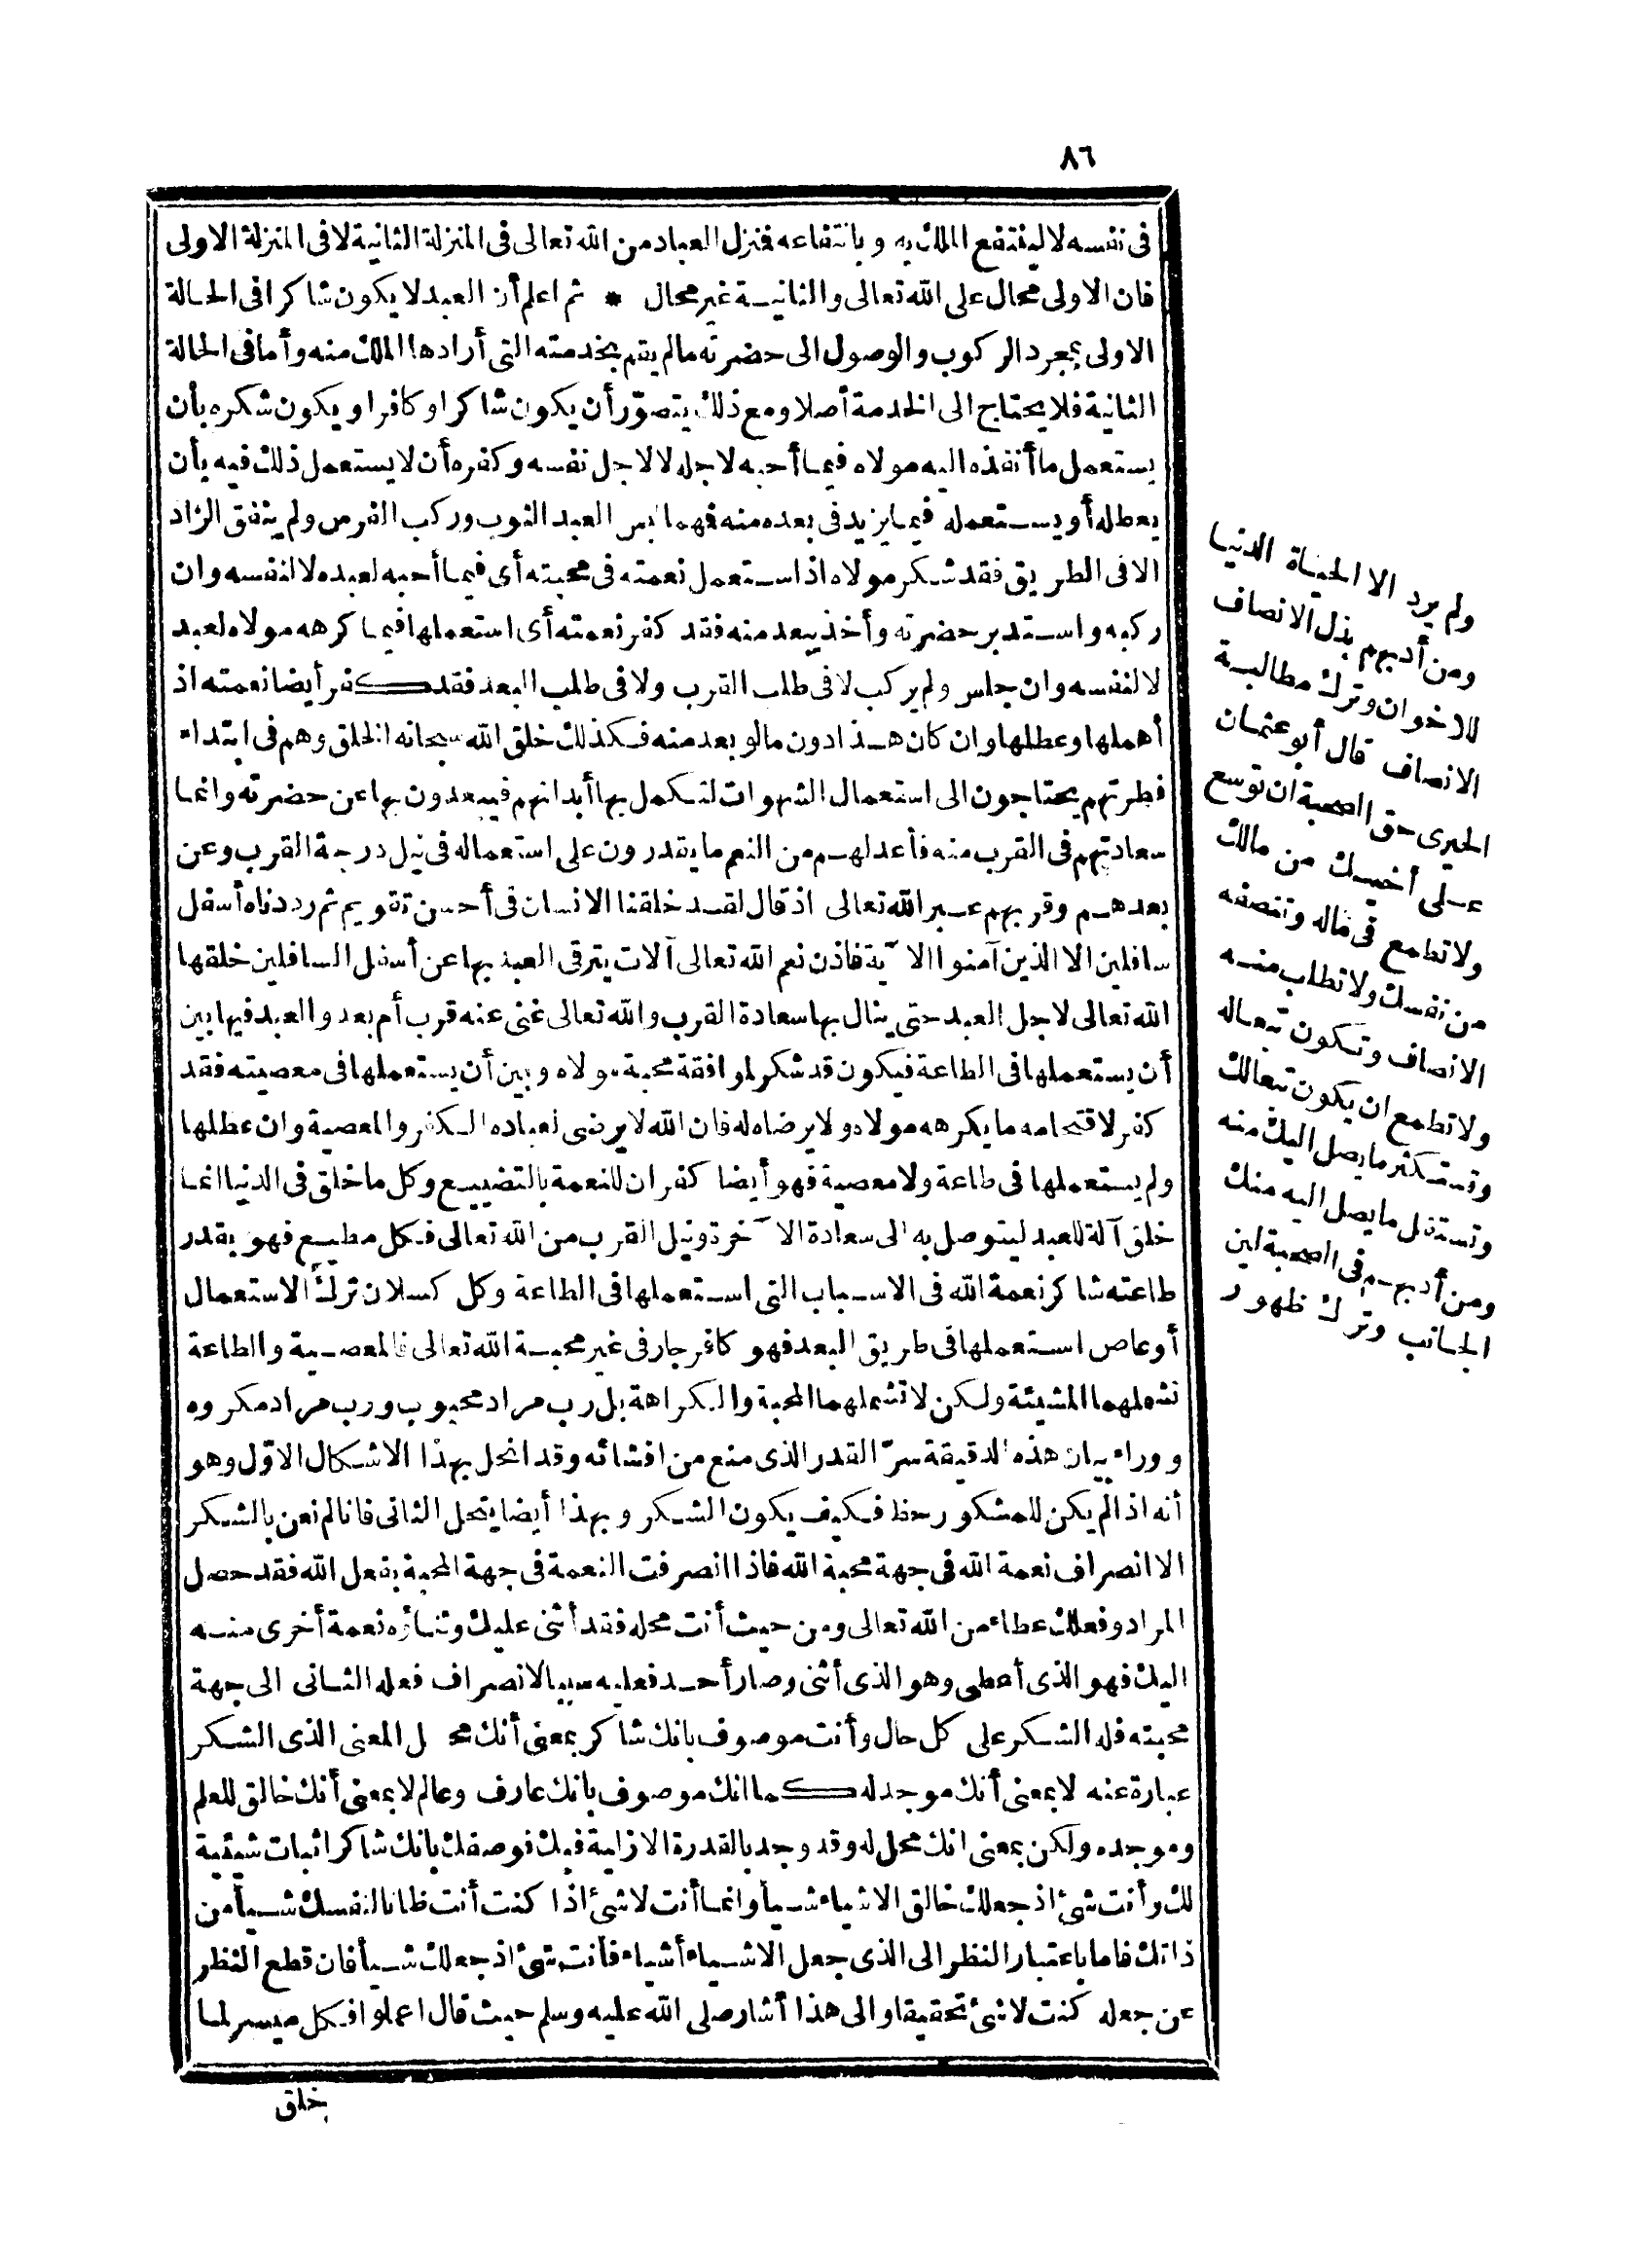 ٨٦
فى نفسه لا لينتفع الملك به وبانتفاعه فنزل العباد من الله تعالى فى المنزلة الثانية لا فى المنزلة الاولى
فان الاولى محال على الله تعالى والثانية غير محال * ثم اعلم أن العبد لا يكون شاكرا فى الحالة
الاولى بمجرد الركوب والوصول الى حضرته مالم يقم بخدمته التى أرادها الملك منه وأما فى الحالة
الثانية فلا يحتاج الى الخدمة أصلا ومع ذلك يتصوّر أن يكون شاكرا وكافرا ويكون شكره بأن
يستعمل ما أنفذه اليه مولاه فيما أحبه لاجله لا لاجل نفسه وكفره أن لا يستعمل ذلك فيه بأن
يعطله أو يستعمله فيما يزيد فى بعده منه فهما لبس العبد الثوب وركب الفرس ولم ينفق الزاد
الا فى الطريق فقد شكر مولاه اذ استعمل نعمته فى محبته أى فيما أحبه لعبده لا لنفسه وان
ركبه واستدبر حضرته وأخذ يبعد منه فقد كفر نعمته أى استعملها فيما كرهه مولاه لعبد
لا لنفسه وان جلس ولم يركب لا فى طلب القرب ولا فى طلب البعد فقد كفر أيضا نعمته اذ
أهملها وعطلها وان كان هذا دون مالو بعد منه فكذلك خلق الله سبحانه الخلق وهم فى ابتداء
فطرتهم يحتاجون الى استعمال الشهوات لتكمل بها أبدانهم فيبعدون بها عن حضرته وانما
سعادتهم فى القرب منه فأعد لهم من النعم ما يقدرون على استعماله فى نيل درجة القرب وعن
بعدهم وقربهم عبر الله تعالى اذ قال لقد خلقنا الانسان فى أحسن تقويم ثم رددناه أسفل
سافلين الا الذين آمنوا الآية فاذن نعم الله تعالى آلات يترقى العبد بها عن أسفل السافلين خلقها
الله تعالى لاجل العبد حتى ينال بها سعادة القرب والله تعالى غنى عنه قرب أم بعد والعبد فيها بين
أن يستعملها فى الطاعة فيكون قد شكر لموافقة محبة مولاه وبين أن يستعملها فى معصيته فقد
كفر لاقتحامه ما يكرهه مولاه ولا يرضاه له فان الله لا يرضى لعباده الكفر والمعصية وان عطلها
ولم يستعملها فى طاعة ولا معصية فهو أيضا كفران للنعمة بالتضييع وكل ما خلق فى الدنيا انما
خلق آلة للعبد ليتوصل به الى سعادة الآخرة ونيل القرب من الله تعالى فكل مطيع فهو بقدر
طاعته شاكر نعمة الله فى الاسباب التى استعملها فى الطاعة وكل كسلان ترك الاستعمال
أو عاص استعملها فى طريق البعد فهو كافر جار فى غير محبة الله تعالى فالمعصية والطاعة
تشملهما المشيئة ولكن لا تشملهما المحبة والكراهة بل رب مراد محبوب ورب مراد مكروه
ووراء بيان هذه الدقيقة سرّ القدر الذى منع من افشائه وقد انحل بهذا الاشكال الاوّل وهو
أنه اذا لم يكن للمشكور حظ فكيف يكون الشكر وبهذا أيضا ينحل الثانى فانا لم نعن بالشكر
الا انصراف نعمة الله فى جهة محبة الله فاذا انصرفت النعمة فى جهة المحبة بفعل الله فقد حصل
المراد وفعلك عطاء من الله تعالى ومن حيث أنت محله فقد أثنى عليك وثناؤه نعمة أخرى منه
اليك فهو الذى أعطى وهو الذى أثنى وصار أحد فعليه سببا لانصراف فعله الثانى الى جهة
محبته فله الشكر على كل حال وأنت موصوف بانك شاكر بمعنى أنك محل المعنى الذى الشكر
عبارة عنه لا بمعنى أنك موجد له كما انك موصوف بانك عارف وعالم لا بمعنى أنك خالق للعلم
وموجده ولكن بمعنى انك محل له وقد وجد بالقدرة الازلية فيك فوصفك بانك شاكر اثبات شيئية
لك وأنت شئ اذ جعلك خالق الاشياء شيأ وانما أنت لا شئ اذا كنت أنت ظانا لنفسك شيأ من
ذاتك فاما باعتبار النظر الى الذى جعل الاشياء أشياء فأنت شئ اذ جعلك شيأ فان قطع النظر
عن جعله كنت لا شئ تحقيقا والى هذا أشار صلى الله عليه وسلم حيث قال اعملوا فكل ميسر لما
خلق
ولم يرد الا الحياة الدنيا
ومن أدبهم بذل الانصاف
للاخوان وترك مطالبة
الانصاف قال أبو عثمان
الحيرى حق الصحبة ان توسع
على أخيك من مالك
ولا تطمع فى ماله وتنصفه
من نفسك ولا تطلب منه
الانصاف وتكون تبعا له
ولا تطمع ان يكون تبعا لك
وتستكثر ما يصل اليك منه
وتستقل ما يصل اليه منك
ومن أدبهم فى الصحبة لين
الجانب وترك ظهور